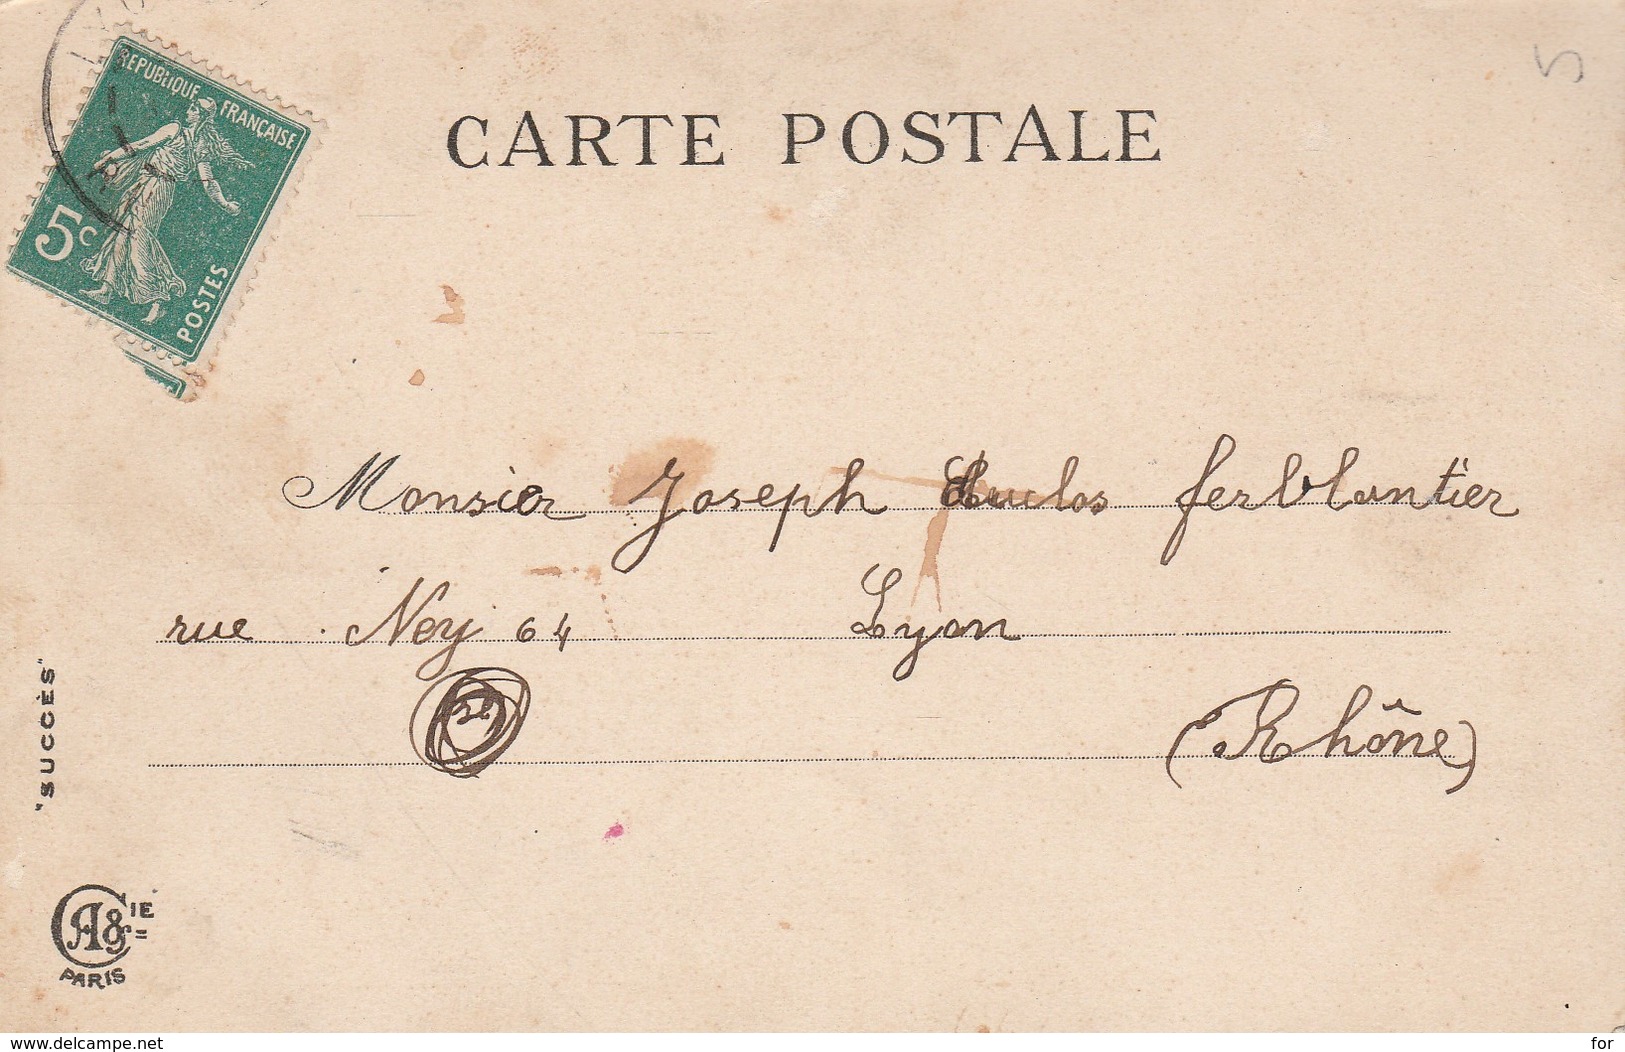 RÉPUBLIQUE FRANÇAISE
5c
POSTES
CARTE POSTALE
5
Monsier Joseph ferblantier
rue Ney 64 Lyon
(Rhône)
"SUCCÈS"
CA&IE
PARIS
www.delcampe.net
for